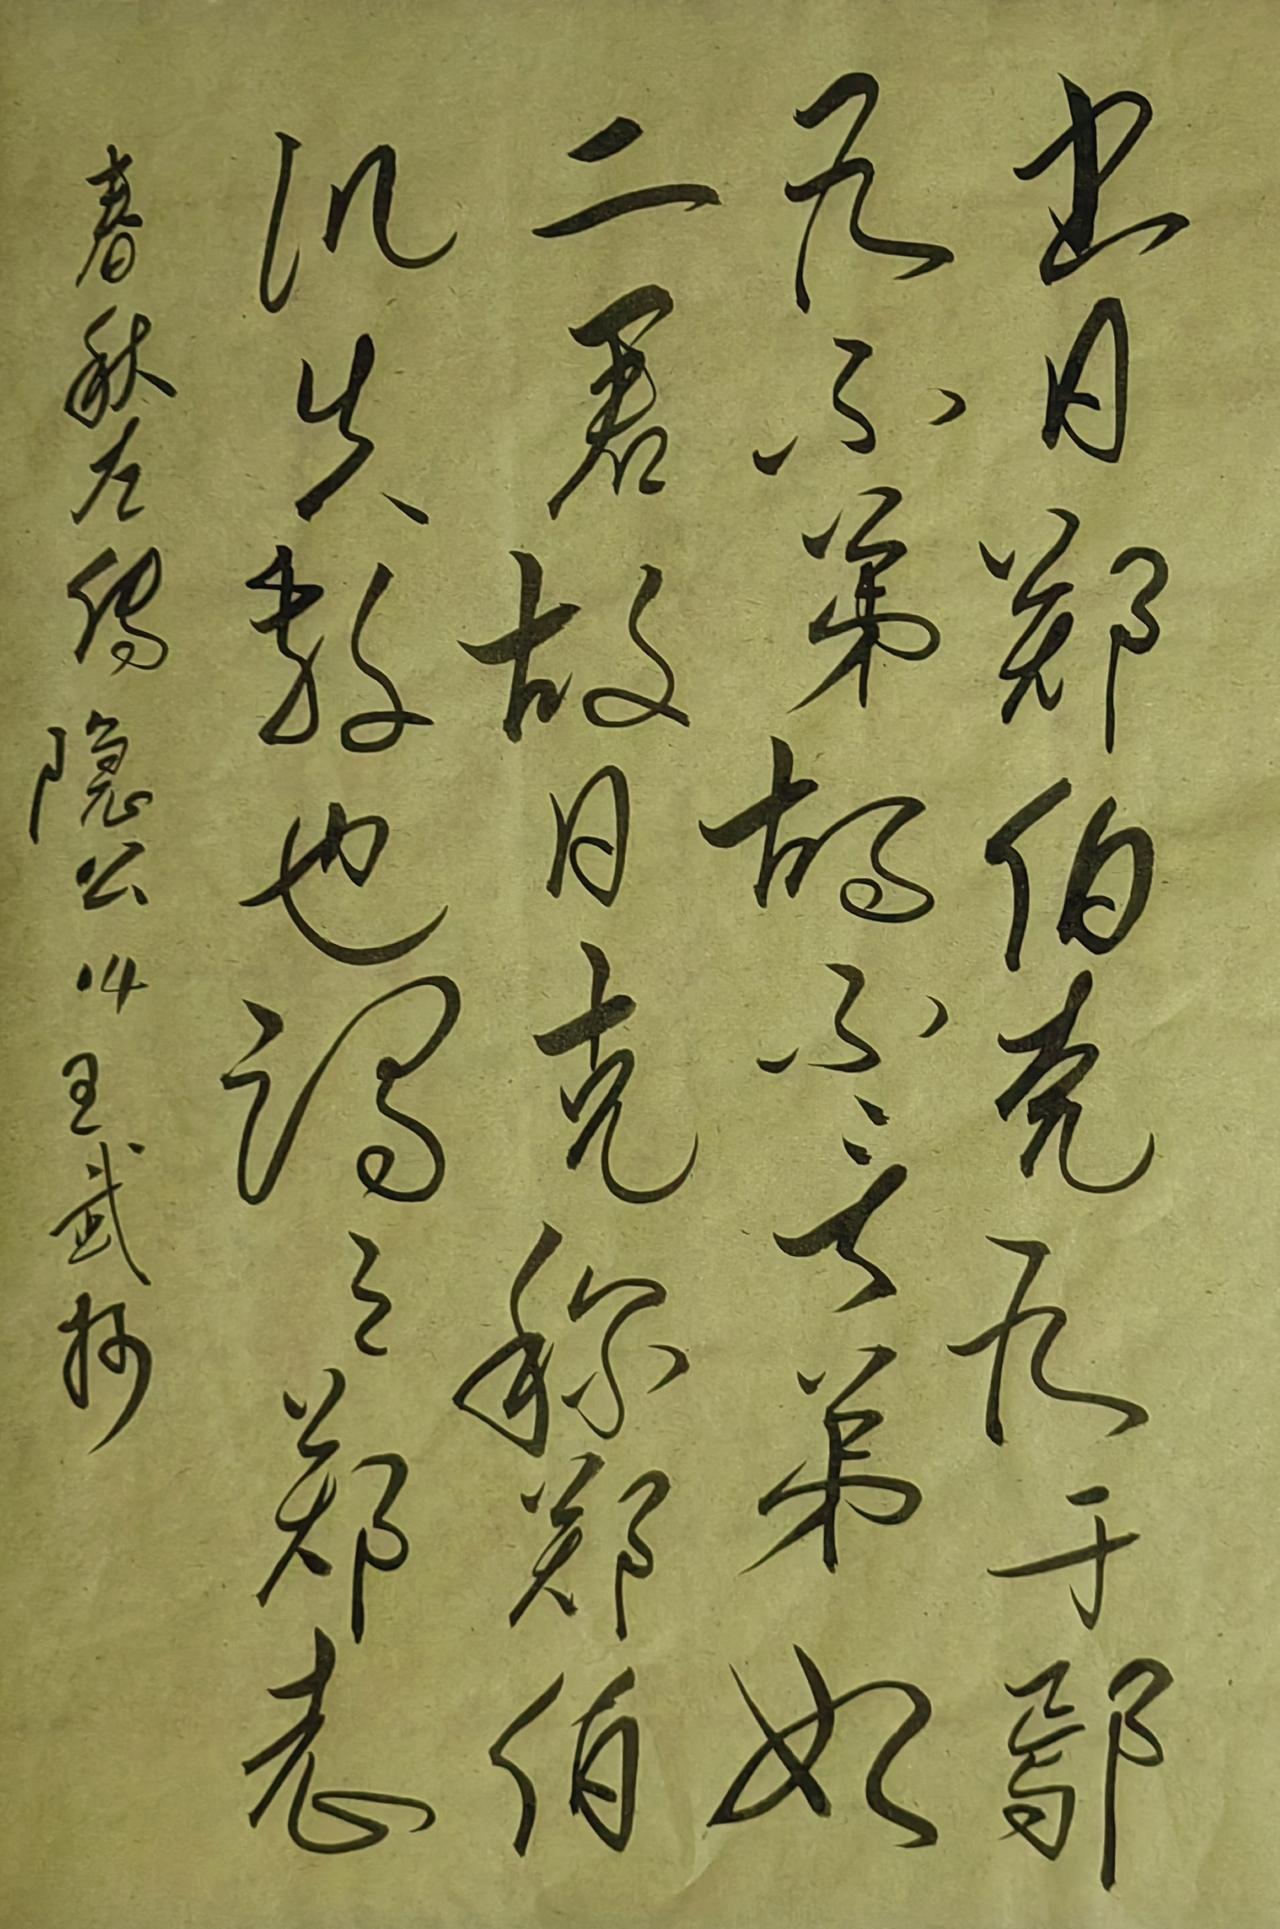 书曰郑伯克段于鄢
段不弟故不言弟如
二君故曰克称郑伯
讥失教也谓之郑志
春秋左传隐公 14 王武